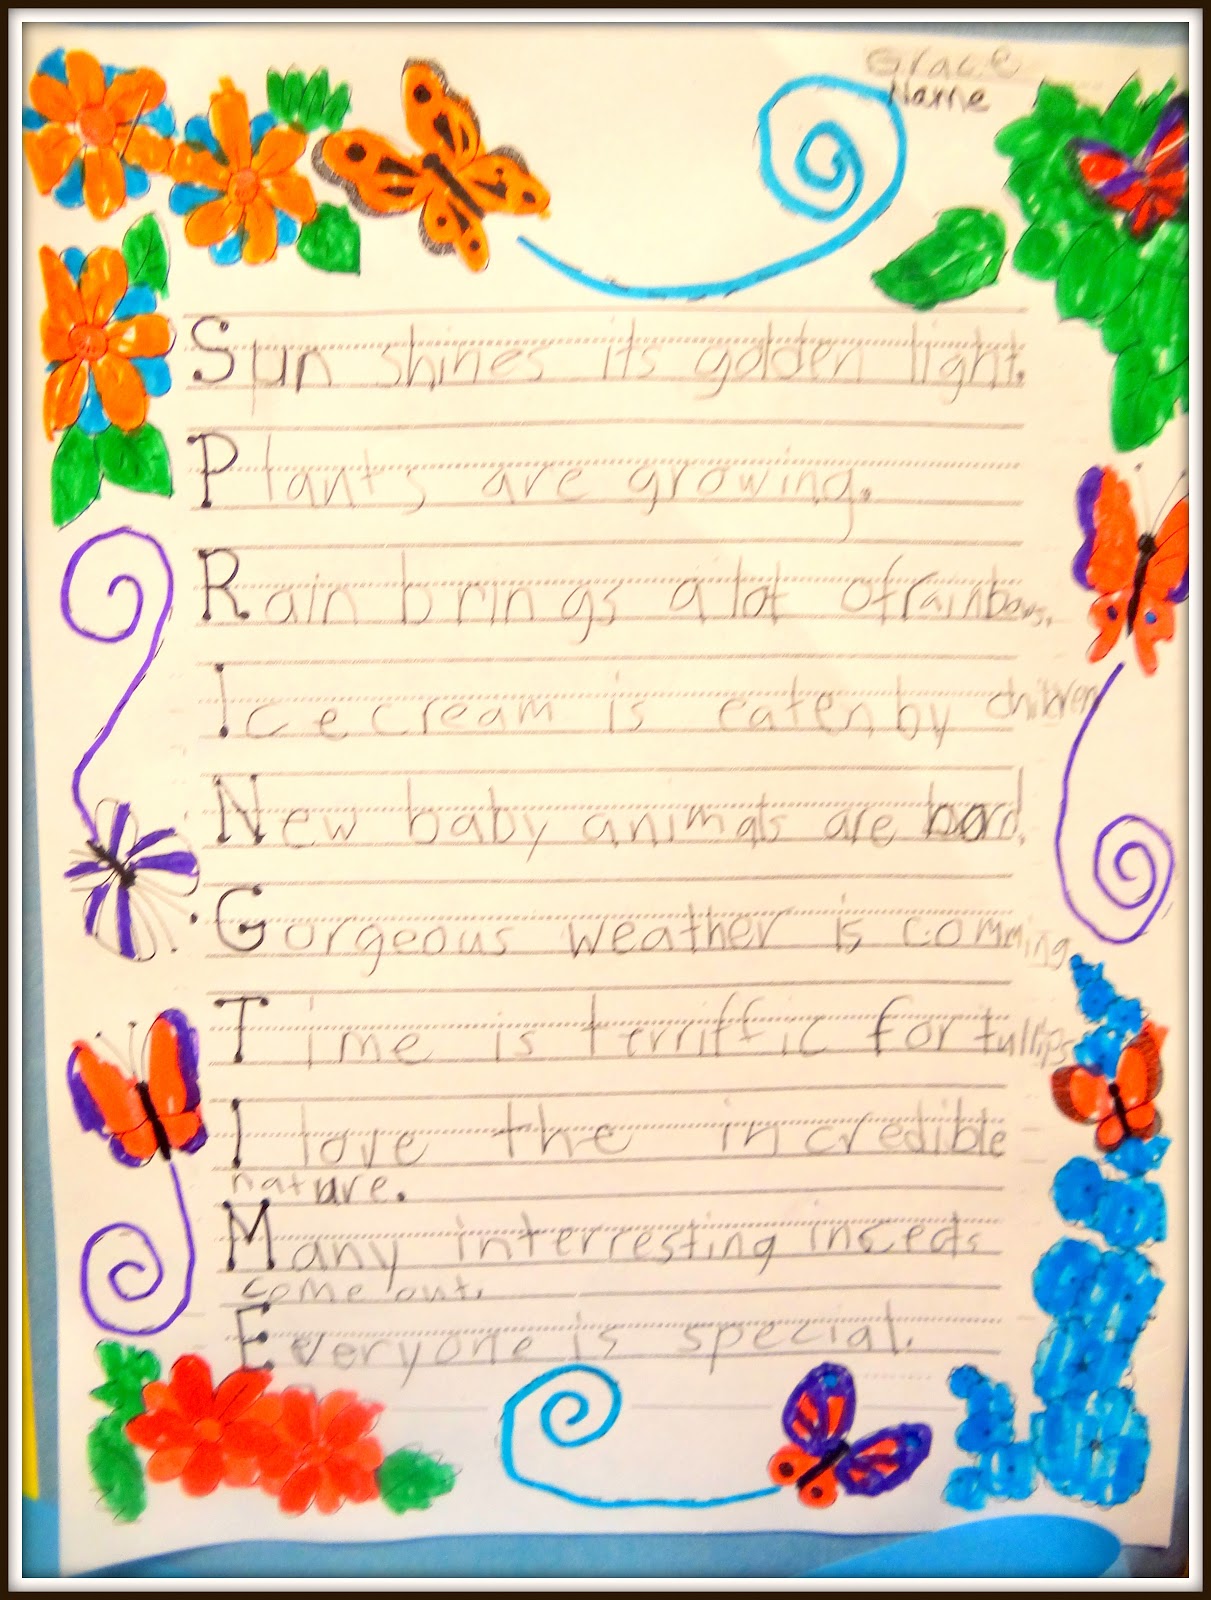 Grace
Name
Sun shines its golden light.
Plants are growing.
Rain brings a lot of rainbows.
Ice cream is eaten by children
New baby animals are
Gorgeous weather is comming
Time is terriffic for tullips
I love the incredible
nature.
Many interresting insects
come out.
Everyone is special.